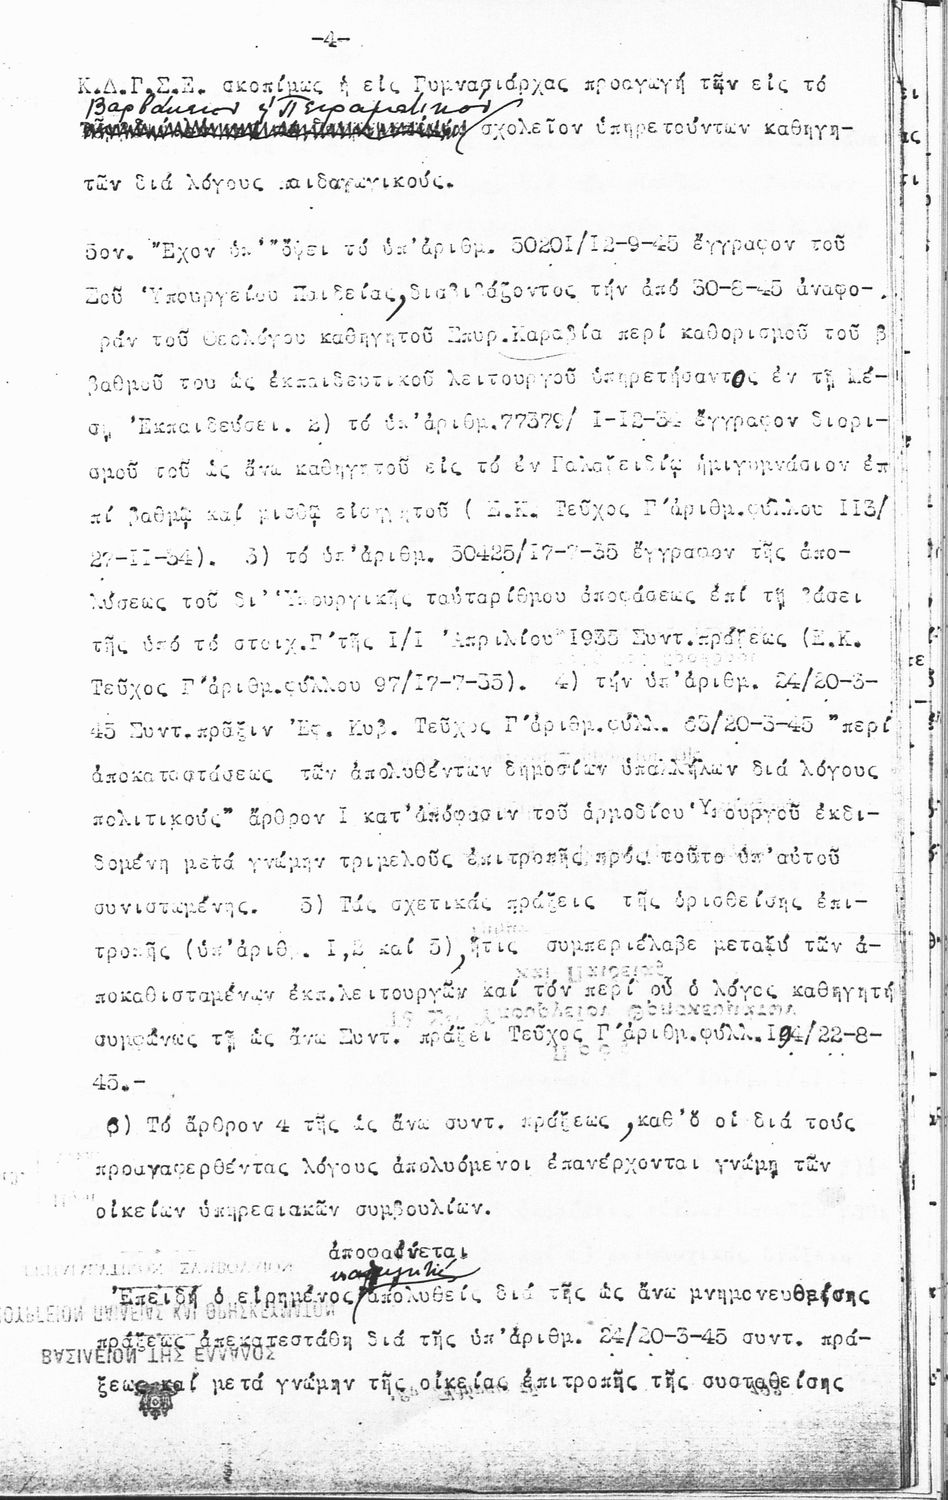 -4-
Κ.Δ.Γ.Σ.Ε. σκοπίμως ἡ εἰς Γυμνασιάρχας προαγωγή τῶν εἰς τό
Βαρβάκειον ἤ Πειραματικόν
σχολεῖον ὑπηρετούντων καθηγη-
τῶν διά λόγους παιδαγωγικούς.
5ον. Ἔχον ὑπ' ὄψει τό ὑπ' ἀριθμ. 50201/12-9-45 ἔγγραφον τοῦ
Σοῦ Ὑπουργείου Παιδείας, διαβιβάζοντος τήν ἀπό 30-8-45 ἀναφο-
ράν τοῦ Θεολόγου καθηγητοῦ Σπυρ.Καραβία περί καθορισμοῦ τοῦ β
βαθμοῦ του ὡς ἐκπαιδευτικοῦ λειτουργοῦ ὑπηρετήσαντος ἐν τῇ Μέ-
σῃ Ἐκπαιδεύσει. 2) τό ὑπ' ἀριθμ.77379/ 1-12-34 ἔγγραφον διορι-
σμοῦ τοῦ ὡς ἄνω καθηγητοῦ εἰς τό ἐν Γαλαξειδίῳ ἡμιγυμνάσιον ἐπ
πί βαθμῷ καί μισθῷ εἰσηγητοῦ ( Ε.Κ. Τεῦχος Γ' ἀριθμ.φύλλου 113/
27-11-34). 3) τό ὑπ' ἀριθμ. 50425/17-7-35 ἔγγραφον τῆς ἀπο-
λύσεως τοῦ δι' Ὑπουργικῆς ταὐταρίθμου ἀποφάσεως ἐπί τῇ βάσει
τῆς ὑπό τό στοιχ.Γ' τῆς 1/1 Ἀπριλίου 1935 Συντ.πράξεως (Ε.Κ.
Τεῦχος Γ' ἀριθμ.φύλλου 97/17-7-35). 4) τήν ὑπ' ἀριθμ. 24/20-3-
45 Συντ.πρᾶξιν Ἐφ. Κυβ. Τεῦχος Γ' ἀριθμ.φύλλ. 63/20-3-45 "περί
ἀποκαταστάσεως τῶν ἀπολυθέντων δημοσίων ὑπαλλήλων διά λόγους
πολιτικούς" ἄρθρον 1 κατ' ἀπόφασιν τοῦ ἁρμοδίου Ὑπουργοῦ ἐκδι-
δομένη μετά γνώμην τριμελοῦς ἐπιτροπῆς πρός τοῦτο ὑπ' αὐτοῦ
συνισταμένης. 5) Τάς σχετικάς πράξεις τῆς ὁρισθείσης ἐπι-
τροπῆς (ὑπ' ἀριθ. 1,2 καί 3), ἥτις συμπεριέλαβε μεταξύ τῶν ἀ-
ποκαθισταμένων ἐκπ.λειτουργῶν καί τόν περί οὗ ὁ λόγος καθηγητή
συμφώνως τῇ ὡς ἄνω Συντ. πράξει Τεῦχος Γ' ἀριθμ.φύλλ.194/22-8-
45.-
6) Τό ἄρθρον 4 τῆς ὡς ἄνω συντ. πράξεως , καθ' ὅ οἱ διά τούς
προαναφερθέντας λόγους ἀπολυόμενοι ἐπανέρχονται γνώμῃ τῶν
οἰκείων ὑπηρεσιακῶν συμβουλίων.
ἀποφαίνεται
καθηγητής
Ἐπειδή ὁ εἰρημένος ἀπολυθείς διά τῆς ὡς ἄνω μνημονευθείσης
πράξεως ἀπεκατεστάθη διά τῆς ὑπ' ἀριθμ. 24/20-3-45 συντ. πρά-
ξεως καί μετά γνώμην τῆς οἰκείας ἐπιτροπῆς τῆς συσταθείσης